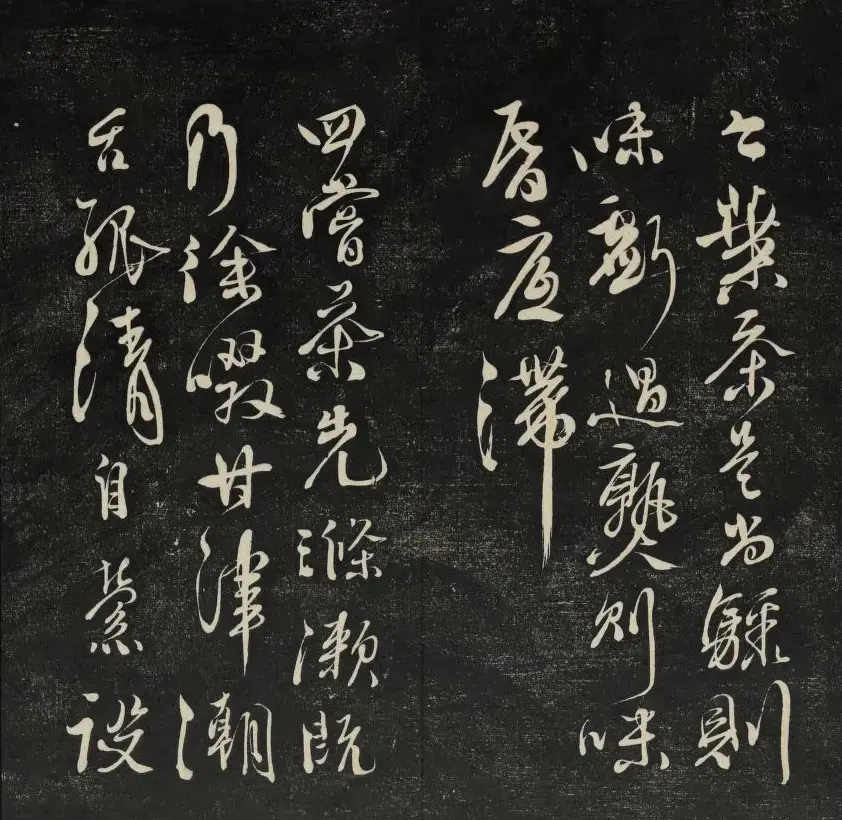 今葉茶是尚驟則
味虧過熟則味
昏底滯
四嘗茶先滌漱既
乃徐啜甘津潮
舌孤清自縈設